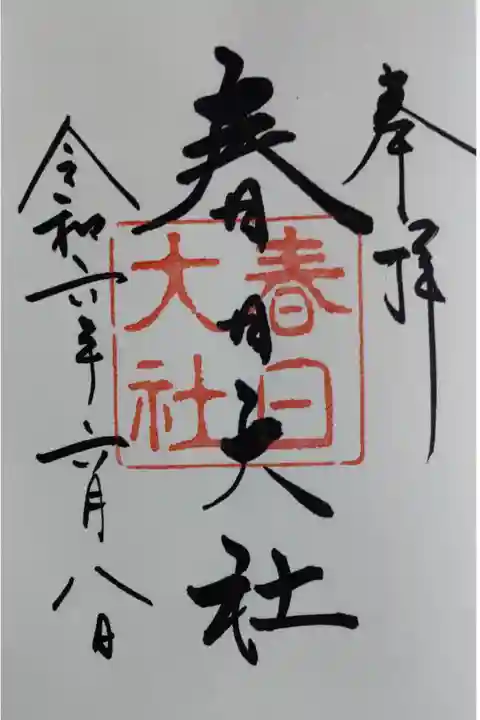 奉拝
春日大社
春日
大社
令和六年六月八日